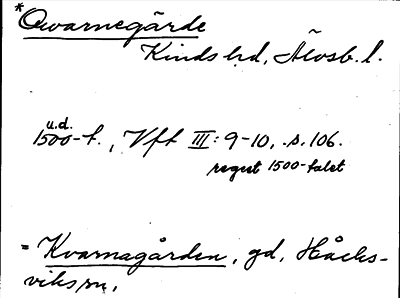 *Qvarnegärde
Kinds hd, Älvsb. l.
u.d.
1500-t., Vft III: 9-10, s. 106.
regest 1500-talet
= Kvarnagården, gd, Håcks-
viks sn,